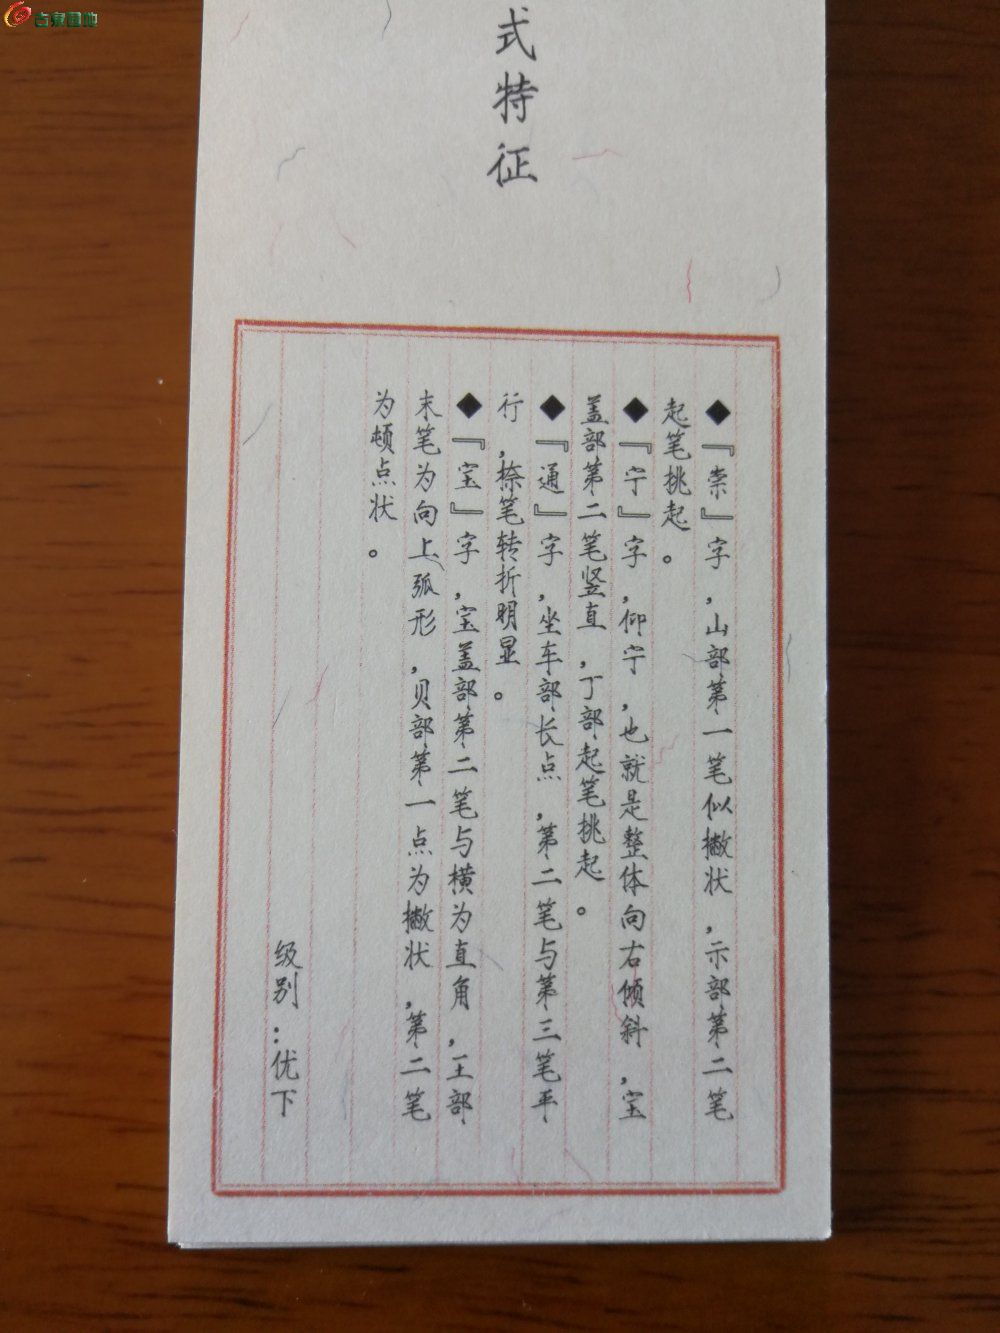 古泉园地
式特征
◆『崇』字，山部第一笔似撇状，示部第二笔
起笔挑起。
◆『宁』字，仰宁，也就是整体向右倾斜，宝
盖部第二笔竖直，丁部起笔挑起。
◆『通』字，坐车部长点，第二笔与第三笔平
行，捺笔转折明显。
◆『宝』字，宝盖部第二笔与横为直角，王部
末笔为向上弧形，贝部第一点为撇状，第二笔
为顿点状。
级别：优下